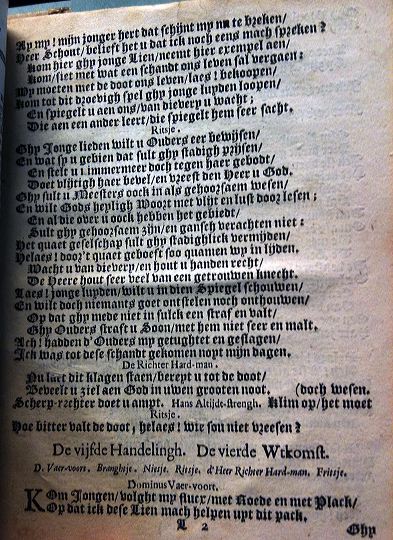 Ay my! mijn jonger hert dat schijnt my nu te breken/
Heer Schout/ belieft het u dat ick noch eens mach spreken?
Kom hier ghy jonge Lien/neemt hier exempel aen/
Kom/ siet met wat een schandt ons leven sal vergaen:
Wy moeten met de doot ons leven/laes! bekoopen/
Kom tot dit droevigh spel ghy jonge luyden loopen/
En spiegelt u aen ons/van dievery u wacht;
Die aen een ander leert/die spiegelt hem seer sacht.
Ritsje.
Ghy Jonge lieden wilt u Ouders eer bewijsen/
En wat sy u gebien dat sult ghy stadigh prijsen/
En stelt u immermeer doch tegen haer gebodt/
Doet vlijtigh haer bevel/en vreest den Heer u God.
Ghy sult u Meesters oock in als gehoorsaem wesen/
En wilt Gods heyligh Woort met vlijt en lust door lesen;
En al die over u oock hebben het gebiedt/
Sult ghy gehoorsaem zijn/en gansch verachten niet:
Het quaet geselschap sult ghy stadighlick vermijden/
Helaes! door't quaet geboeft soo quamen wy in lijden.
Wacht u van dievery/en hout u handen recht/
De Heere hout seer veel van een getrouwen knecht.
Laes! jonge luyden/wilt u in dien Spiegel schouwen/
En wilt doch niemants goet ontstelen noch onthouwen/
Op dat ghy mede niet in sulck een straf en valt/
Ghy Ouders straft u Soon/met hem niet seer en malt.
Ach! hadden d'Ouders my getughtet en geslagen/
Ick was tot dese schandt gekomen nopt mijn dagen.
De Richter Hard-man.
Nu laet dit klagen staen/bereyt u tot de doot/
Beveelt u ziel aen God in uwen grooten noot. (doch wesen.
Scherp-rechter doet u ampt. Hans Altijdt-strengh. Klim op/het moet
Ritsje.
Hoe bitter valt de doot, helaes! wie sou niet vreesen?
De vijfde Handelingh. De vierde Wtkomst.
D. Vaer-voort. Branghtje. Nietje. Ritsje. d'Heer Richter Hard-man. Fritsje.
Dominus Vaer-voort.
KOm Jongen/volght my flucx/met Roede en met Plack/
Op dat ick dese Lien mach helpen uyt dit pack.
L 2
Ghy